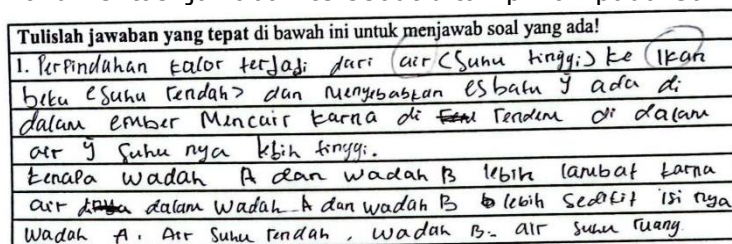 Tulislah jawaban yang tepat di bawah ini untuk menjawab soal yang ada!
1. Perpindahan kalor terjadi dari air (Suhu tinggi) ke Ikan
beku (Suhu rendah) dan Menyebabkan es batu yg ada di
dalam ember Mencair karna di rendem di dalam
air yg Suhu nya lebih tinggi.
kenapa wadah A dan wadah B lebih lambat karna
air dalam wadah A dan wadah B lebih sedikit isi nya
wadah A. Air Suhu rendah, wadah B. air suhu ruang.